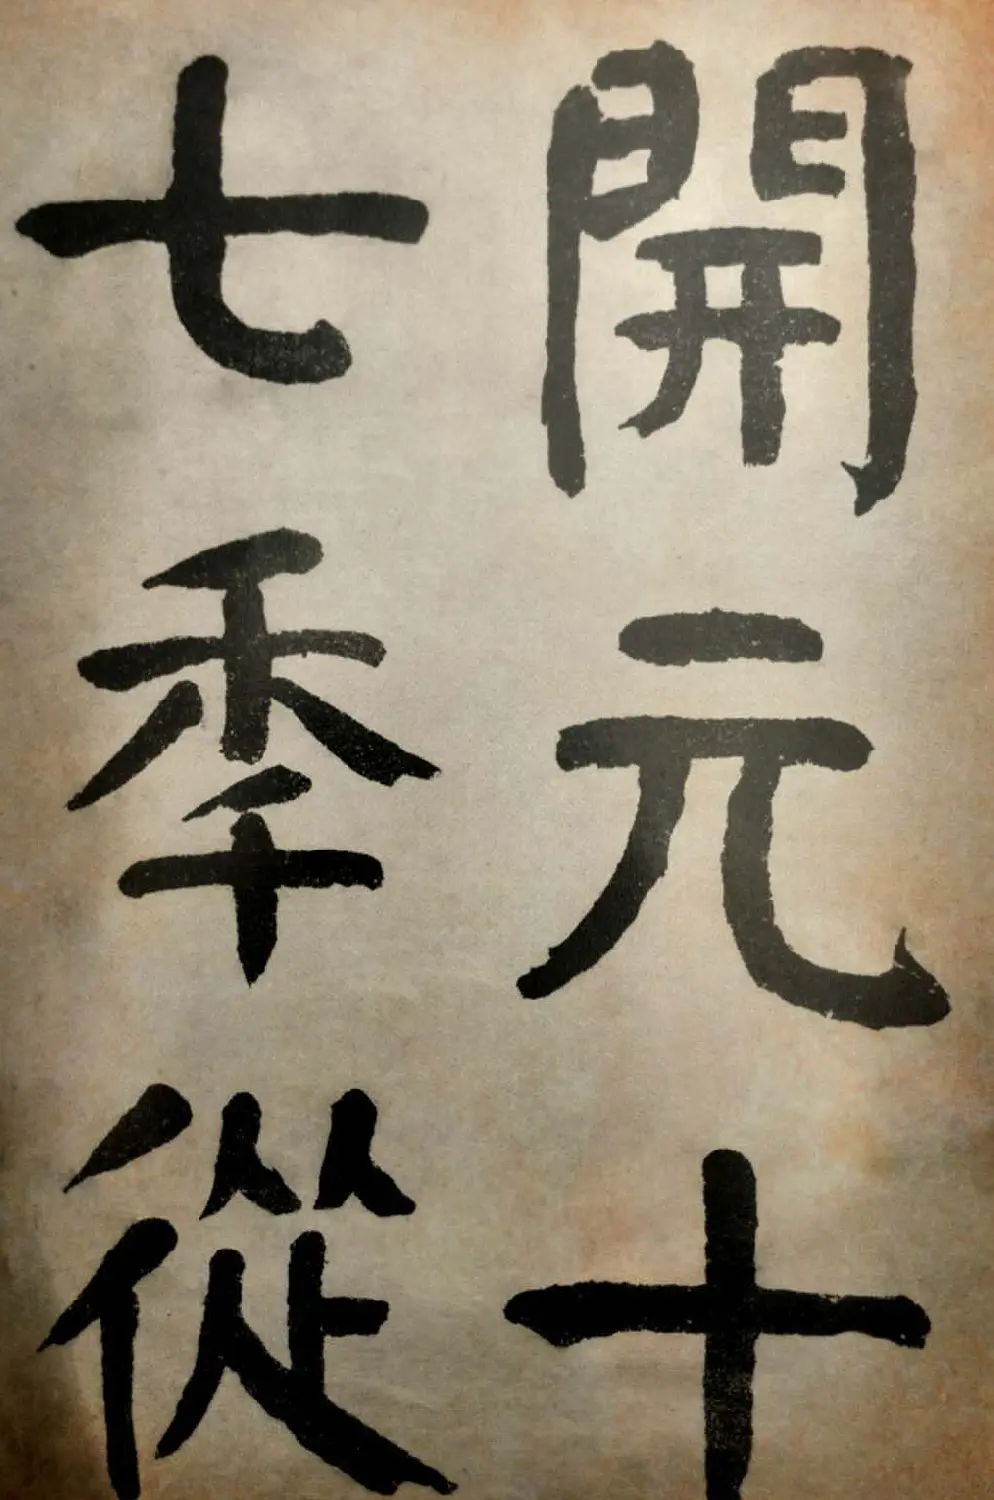 開元十
七秊從